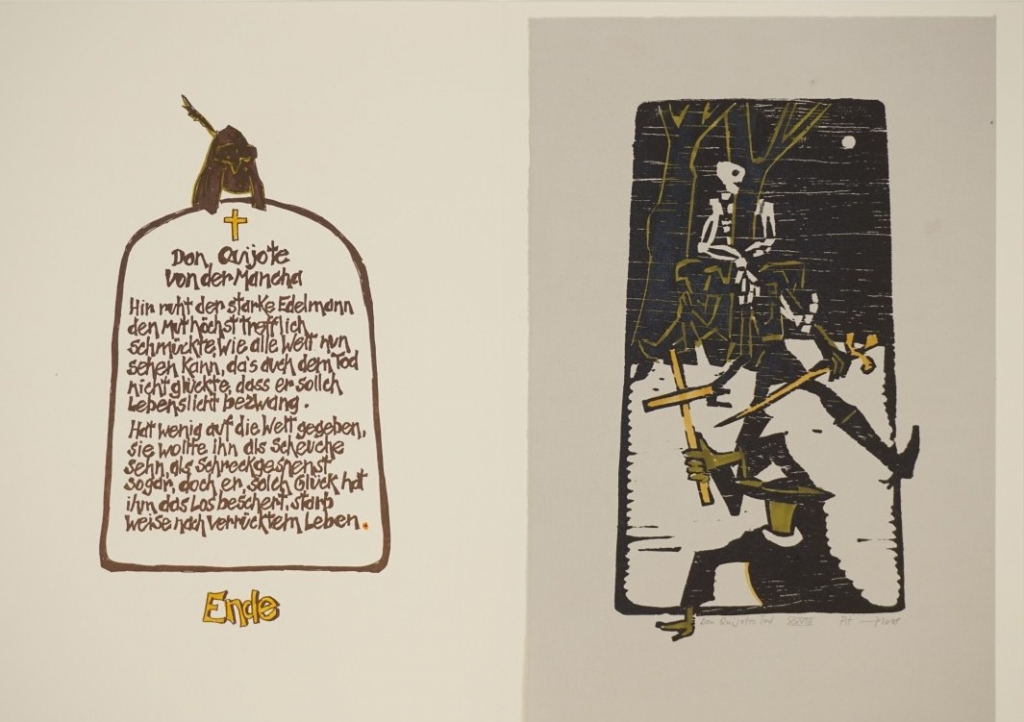 Don Quijote
von der Mancha
Hir ruht der starke Edelmann
den Mut höchst trefflich
schmückte, wie alle Welt nun
sehen kann, da's auch dem Tod
nicht glückte, dass er solch
Lebenslicht bezwang.
Hat wenig auf die Welt gegeben,
sie wollte ihn als Scheuche
sehn, als Schreckgespenst
sogar, doch er, solch Glück hat
ihm das Los beschert, starb
weise nach verrücktem Leben.
Ende
Don Quijotes Tod XXXVIII Pit